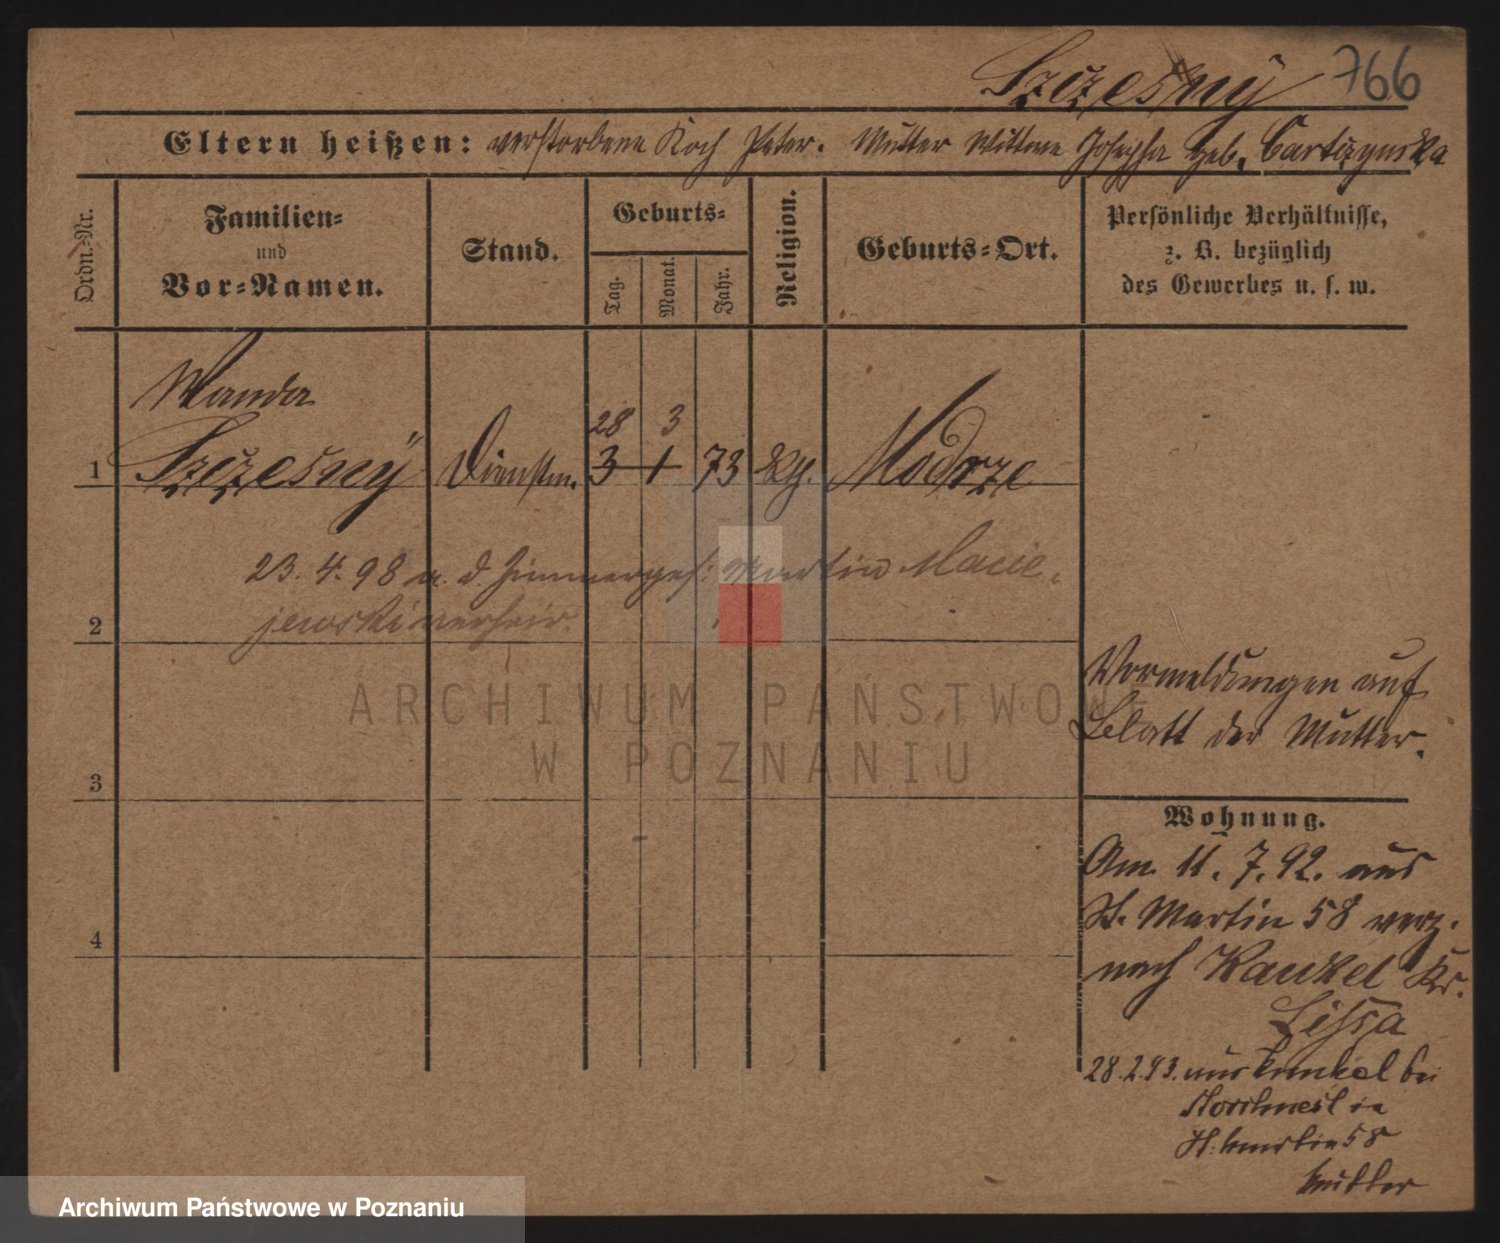 Szczesny 766
Eltern heißen: verstorbene Koch Peter. Mutter Wittwe Josepha geb.
Ordn.-Nr.
Familien-
und
Vor-Namen.
Stand.
Geburts-
Tag.
Monat.
Jahr.
Religion.
Geburts-Ort.
Persönliche Verhältnisse,
z. B. bezüglich
des Gewerbes u. s. w.
Wanda
28 3
1 Szczesny Dienstm. 3 1 73 kth. Modrze
23. 4. 98 a. d. Zimmerges: Martin Macie-
2 jewski verheir.
Vormeldungen auf
Blatt der Mutter.
3
Wohnung.
Am 11. 7. 92. aus
St. Martin 58 verz.
4
nach Kankel Kr.
Lissa
28.2.93. aus Kankel bei
in
St. Martin 58
Mutter
ARCHIWUM PAŃSTWOWE
W POZNANIU
Archiwum Państwowe w Poznaniu